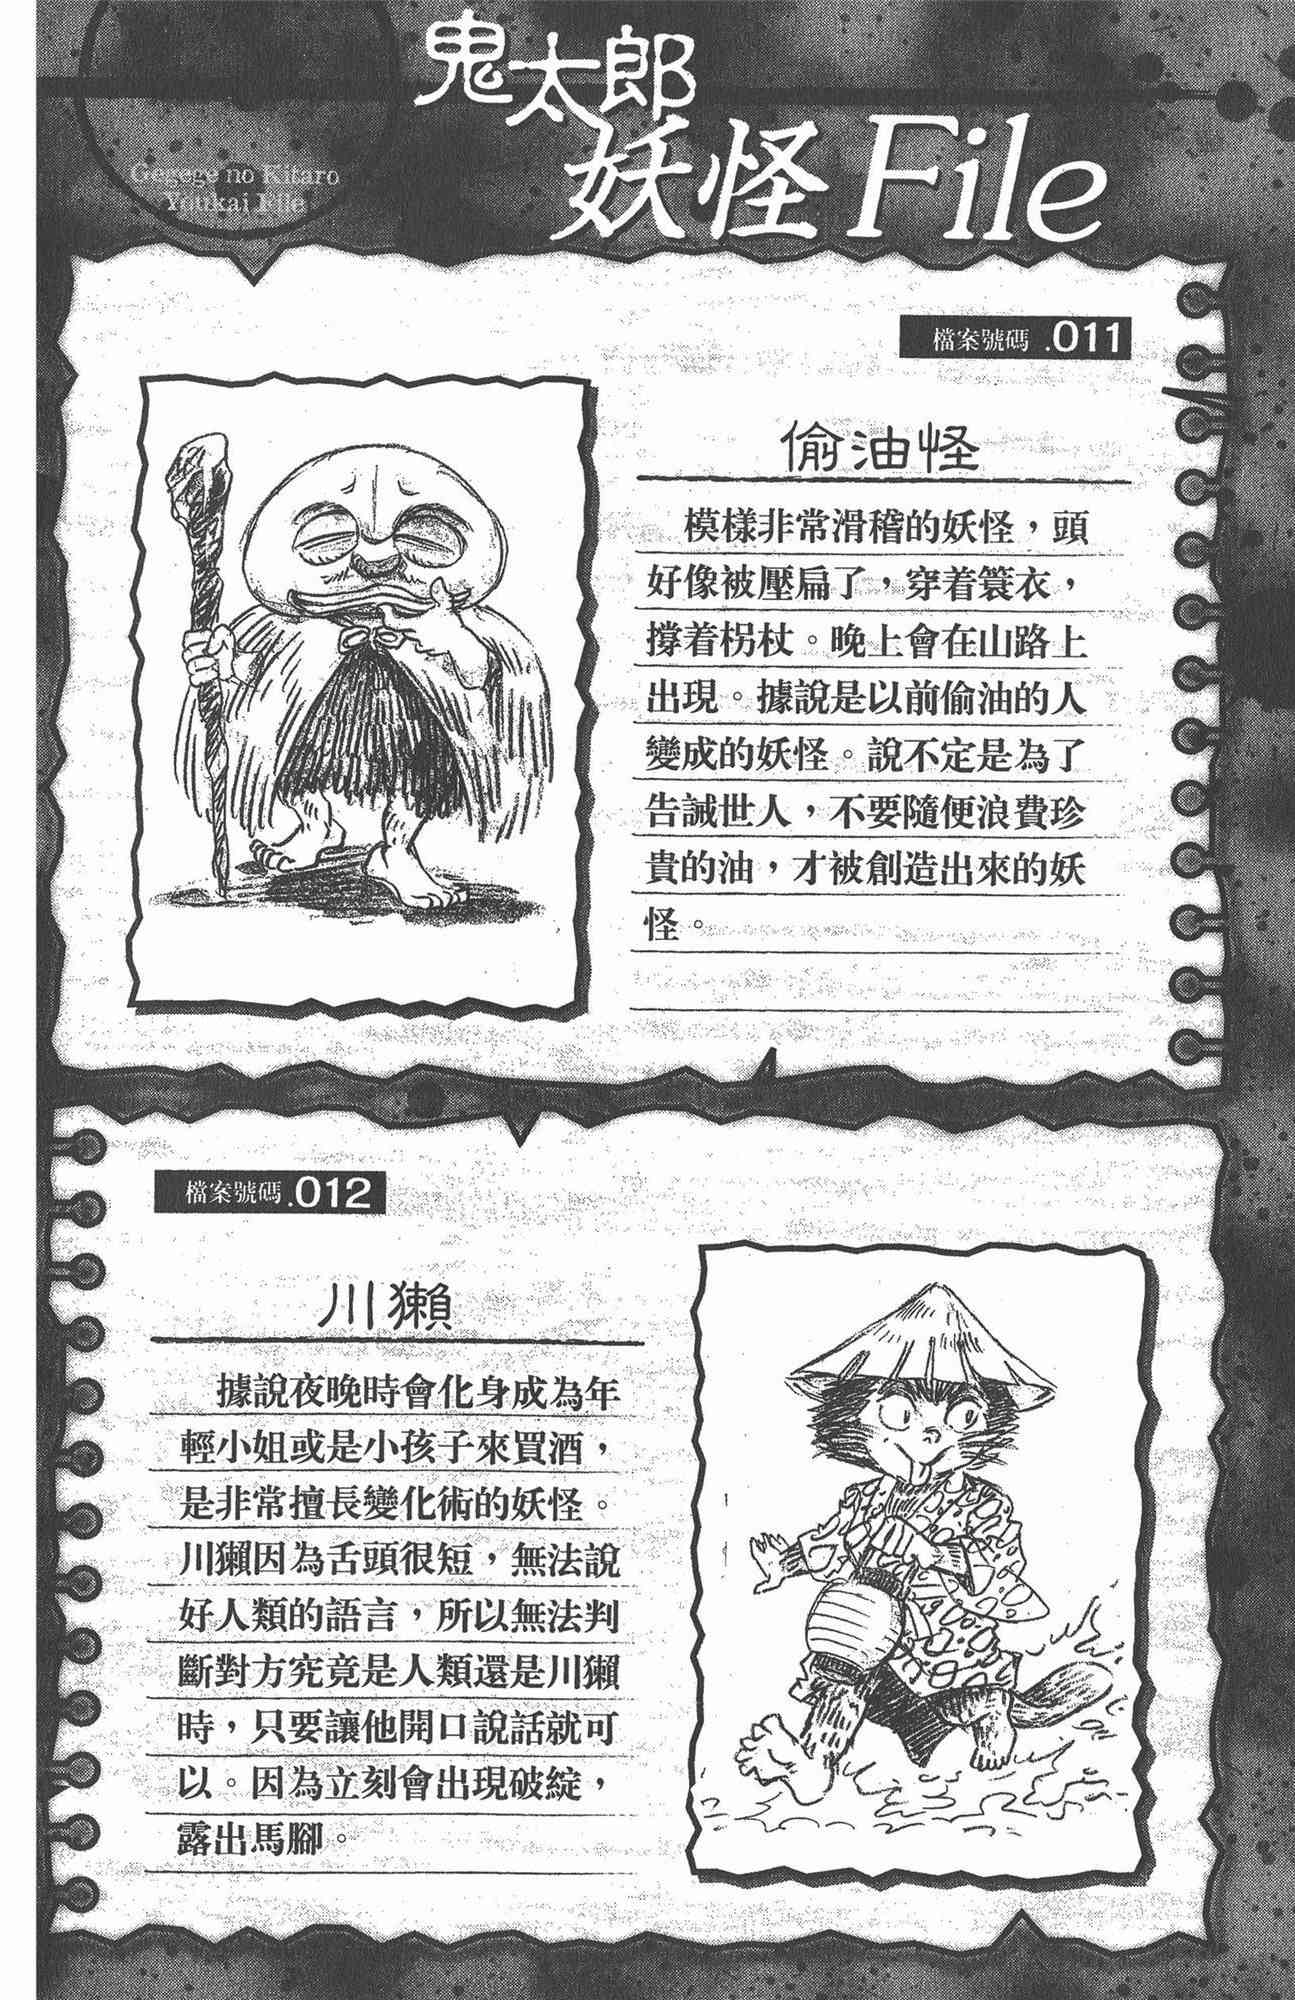 鬼太郎
妖怪File
Gegege no Kitaro
Youkai File
檔案號碼.011
偷油怪
模樣非常滑稽的妖怪，頭
好像被壓扁了，穿着簑衣，
撐着柺杖。晚上會在山路上
出現。據說是以前偷油的人
變成的妖怪。說不定是為了
告誡世人，不要隨便浪費珍
貴的油，才被創造出來的妖
怪。
檔案號碼.012
川獺
據說夜晚時會化身成為年
輕小姐或是小孩子來買酒，
是非常擅長變化術的妖怪。
川獺因為舌頭很短，無法說
好人類的語言，所以無法判
斷對方究竟是人類還是川獺
時，只要讓他開口說話就可
以。因為立刻會出現破綻，
露出馬腳。